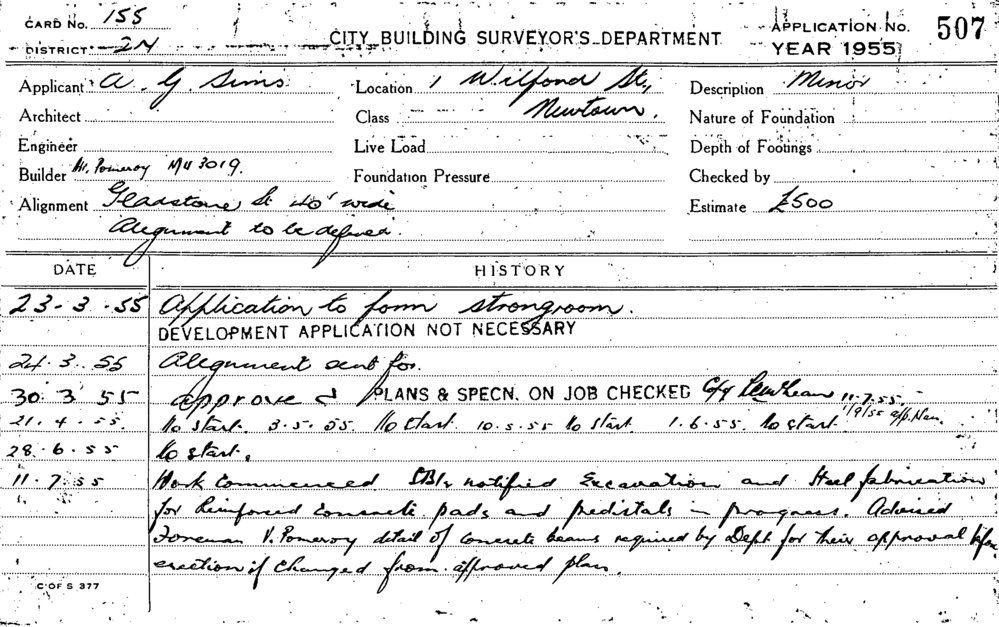 CARD No. 155
DISTRICT 2N
CITY BUILDING SURVEYOR'S DEPARTMENT
APPLICATION No. 507
YEAR 1955
Applicant A. G. Sims
Location 1 Wilford St,
Description Minor
Architect
Class Newtown.
Nature of Foundation
Engineer
Live Load
Depth of Footings
Builder Pomeroy MU 3019.
Foundation Pressure
Checked by
Alignment Gladstone St 40' wide
Estimate £500
Alignment to be defined.
DATE
HISTORY
23-3-55 Application to form strongroom.
DEVELOPMENT APPLICATION NOT NECESSARY
24.3.55 Alignment sent for.
30 3 55 approve PLANS & SPECN. ON JOB CHECKED 11-7-55
1/9/55
21.4.55. No start. 3.5.55. No start. 10.5.55 No start. 1.6.55. No start.
28.6.55 No start.
11.7.55 Work commenced notified Excavation and Steel fabrication
for Reinforced concrete pads and pedistals in progress. Advised
Foreman V. Pomeroy detail of concrete beams required by Dept for their approval before
erection if changed from approved plan.
C OF S 377